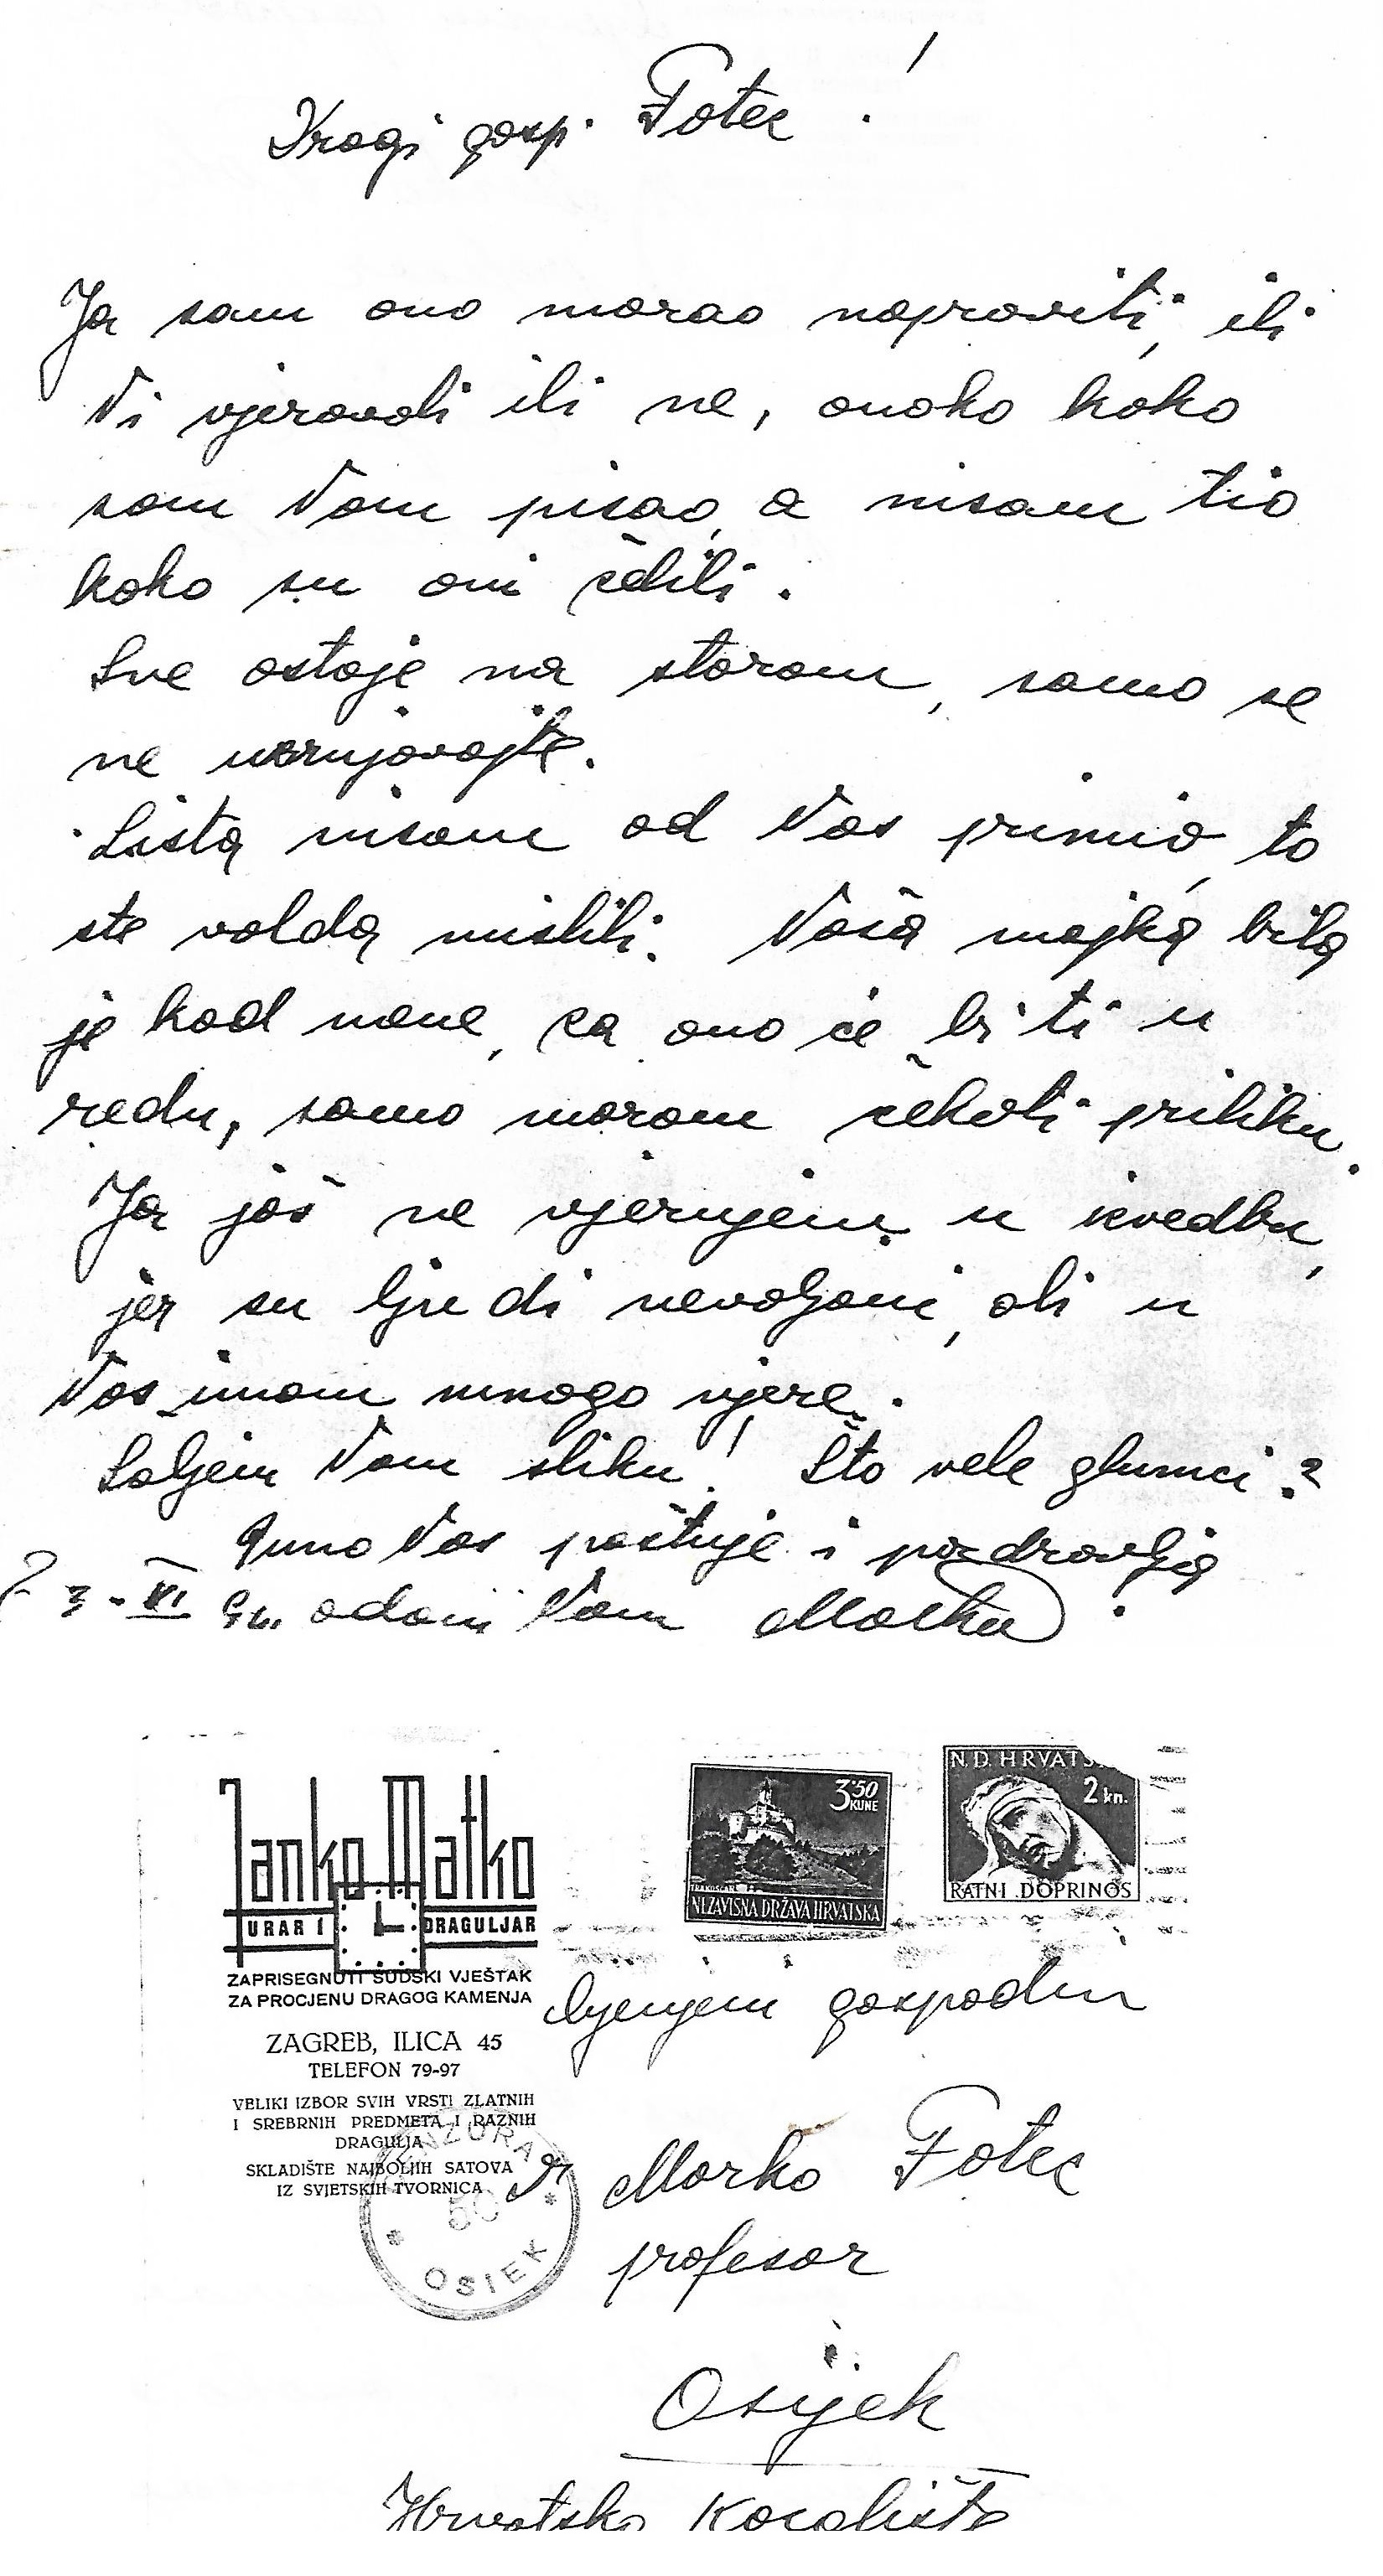 Dragi gosp. Fotez!
Ja sam ono morao napraviti, ili
Vi vjerovali ili ne, onako kako
sam Vam pisao, a nisam tio
kako su oni želili.
Sve ostaje na starom, samo se
ne uzrujavajte.
Lista nisam od Vas primio, to
ste valda mislili. Vaša majka bila
je kod mene, za ono će biti u
redu, samo moram čekati priliku.
Ja još ne vjerujem u izvedbu,
jer su ljudi nevaljani, ali u
Vas imam mnogo vjere.
Šaljem Vam sliku! Što vele glumci?
Puno Vas poštuje i pozdravlja
23.-XI 94. odani Vam Matko!
Janko Matko
URAR I DRAGULJAR
ZAPRISEGNUTI SUDSKI VJEŠTAK
ZA PROCJENU DRAGOG KAMENJA
ZAGREB, ILICA 45
TELEFON 79-97
VELIKI IZBOR SVIH VRSTI ZLATNIH
I SREBRNIH PREDMETA I RAZNIH
DRAGULJA
SKLADIŠTE NAJBOLJIH SATOVA
IZ SVJETSKIH TVORNICA
CENZURA
50
OSIEK
3·50
KUNE
TRAKOŠĆAN
NEZAVISNA DRŽAVA HRVATSKA
N.D. HRVATS
2 kn.
RATNI DOPRINOS
Cijenjeni gospodin
Dr Marko Fotez
profesor
Osijek
Hrvatsko Kazalište